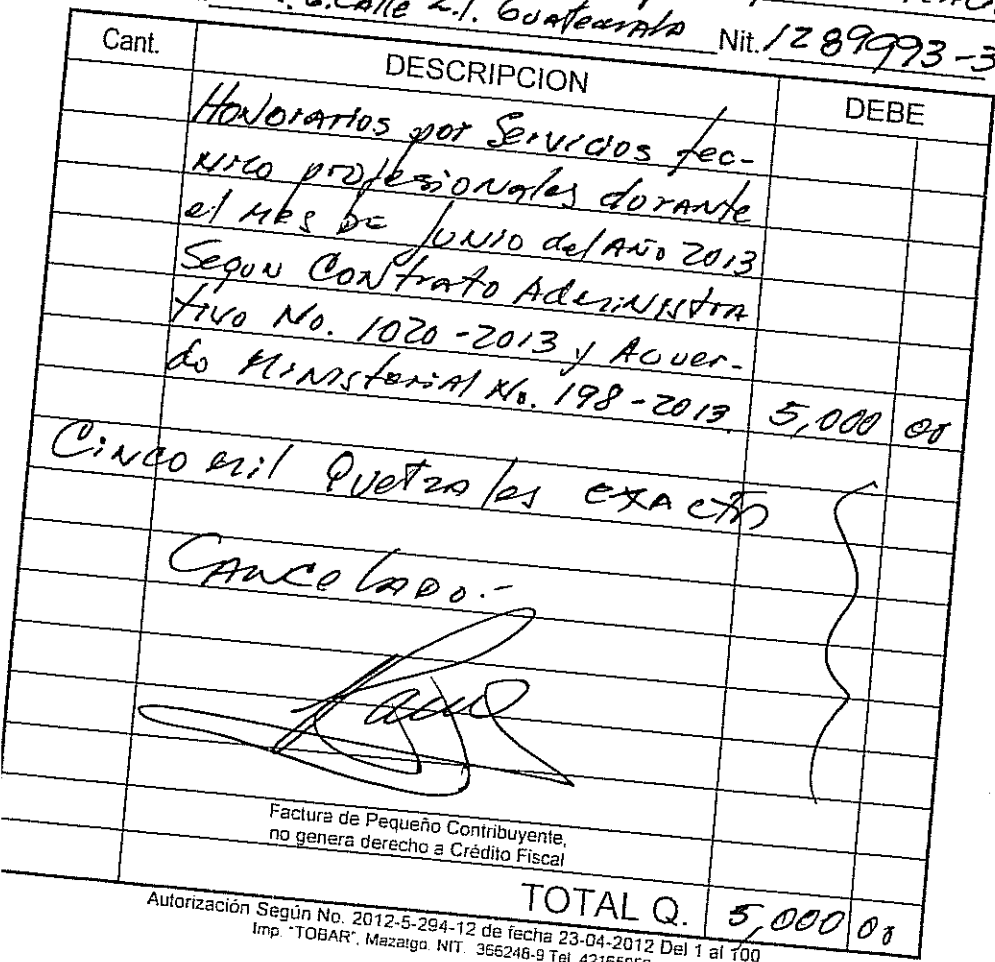 6. Calle Z.1. Guatemala Nit. 1289993-3
Cant. DESCRIPCION DEBE
Honorarios por Servicios tec-
nico profesionales durante
el mes de Junio del Año 2013
Segun Contrato Administra
tivo No. 1020-2013 y Acuer-
do Ministerial No. 198-2013. 5,000 00
Cinco mil Quetzales exactos
Cancelado.-
Factura de Pequeño Contribuyente,
no genera derecho a Crédito Fiscal
TOTAL Q. 5,000 00
Autorización Según No. 2012-5-294-12 de fecha 23-04-2012 Del 1 al 100
Imp. "TOBAR", Mazatgo. NIT. 366248-9 Tel.